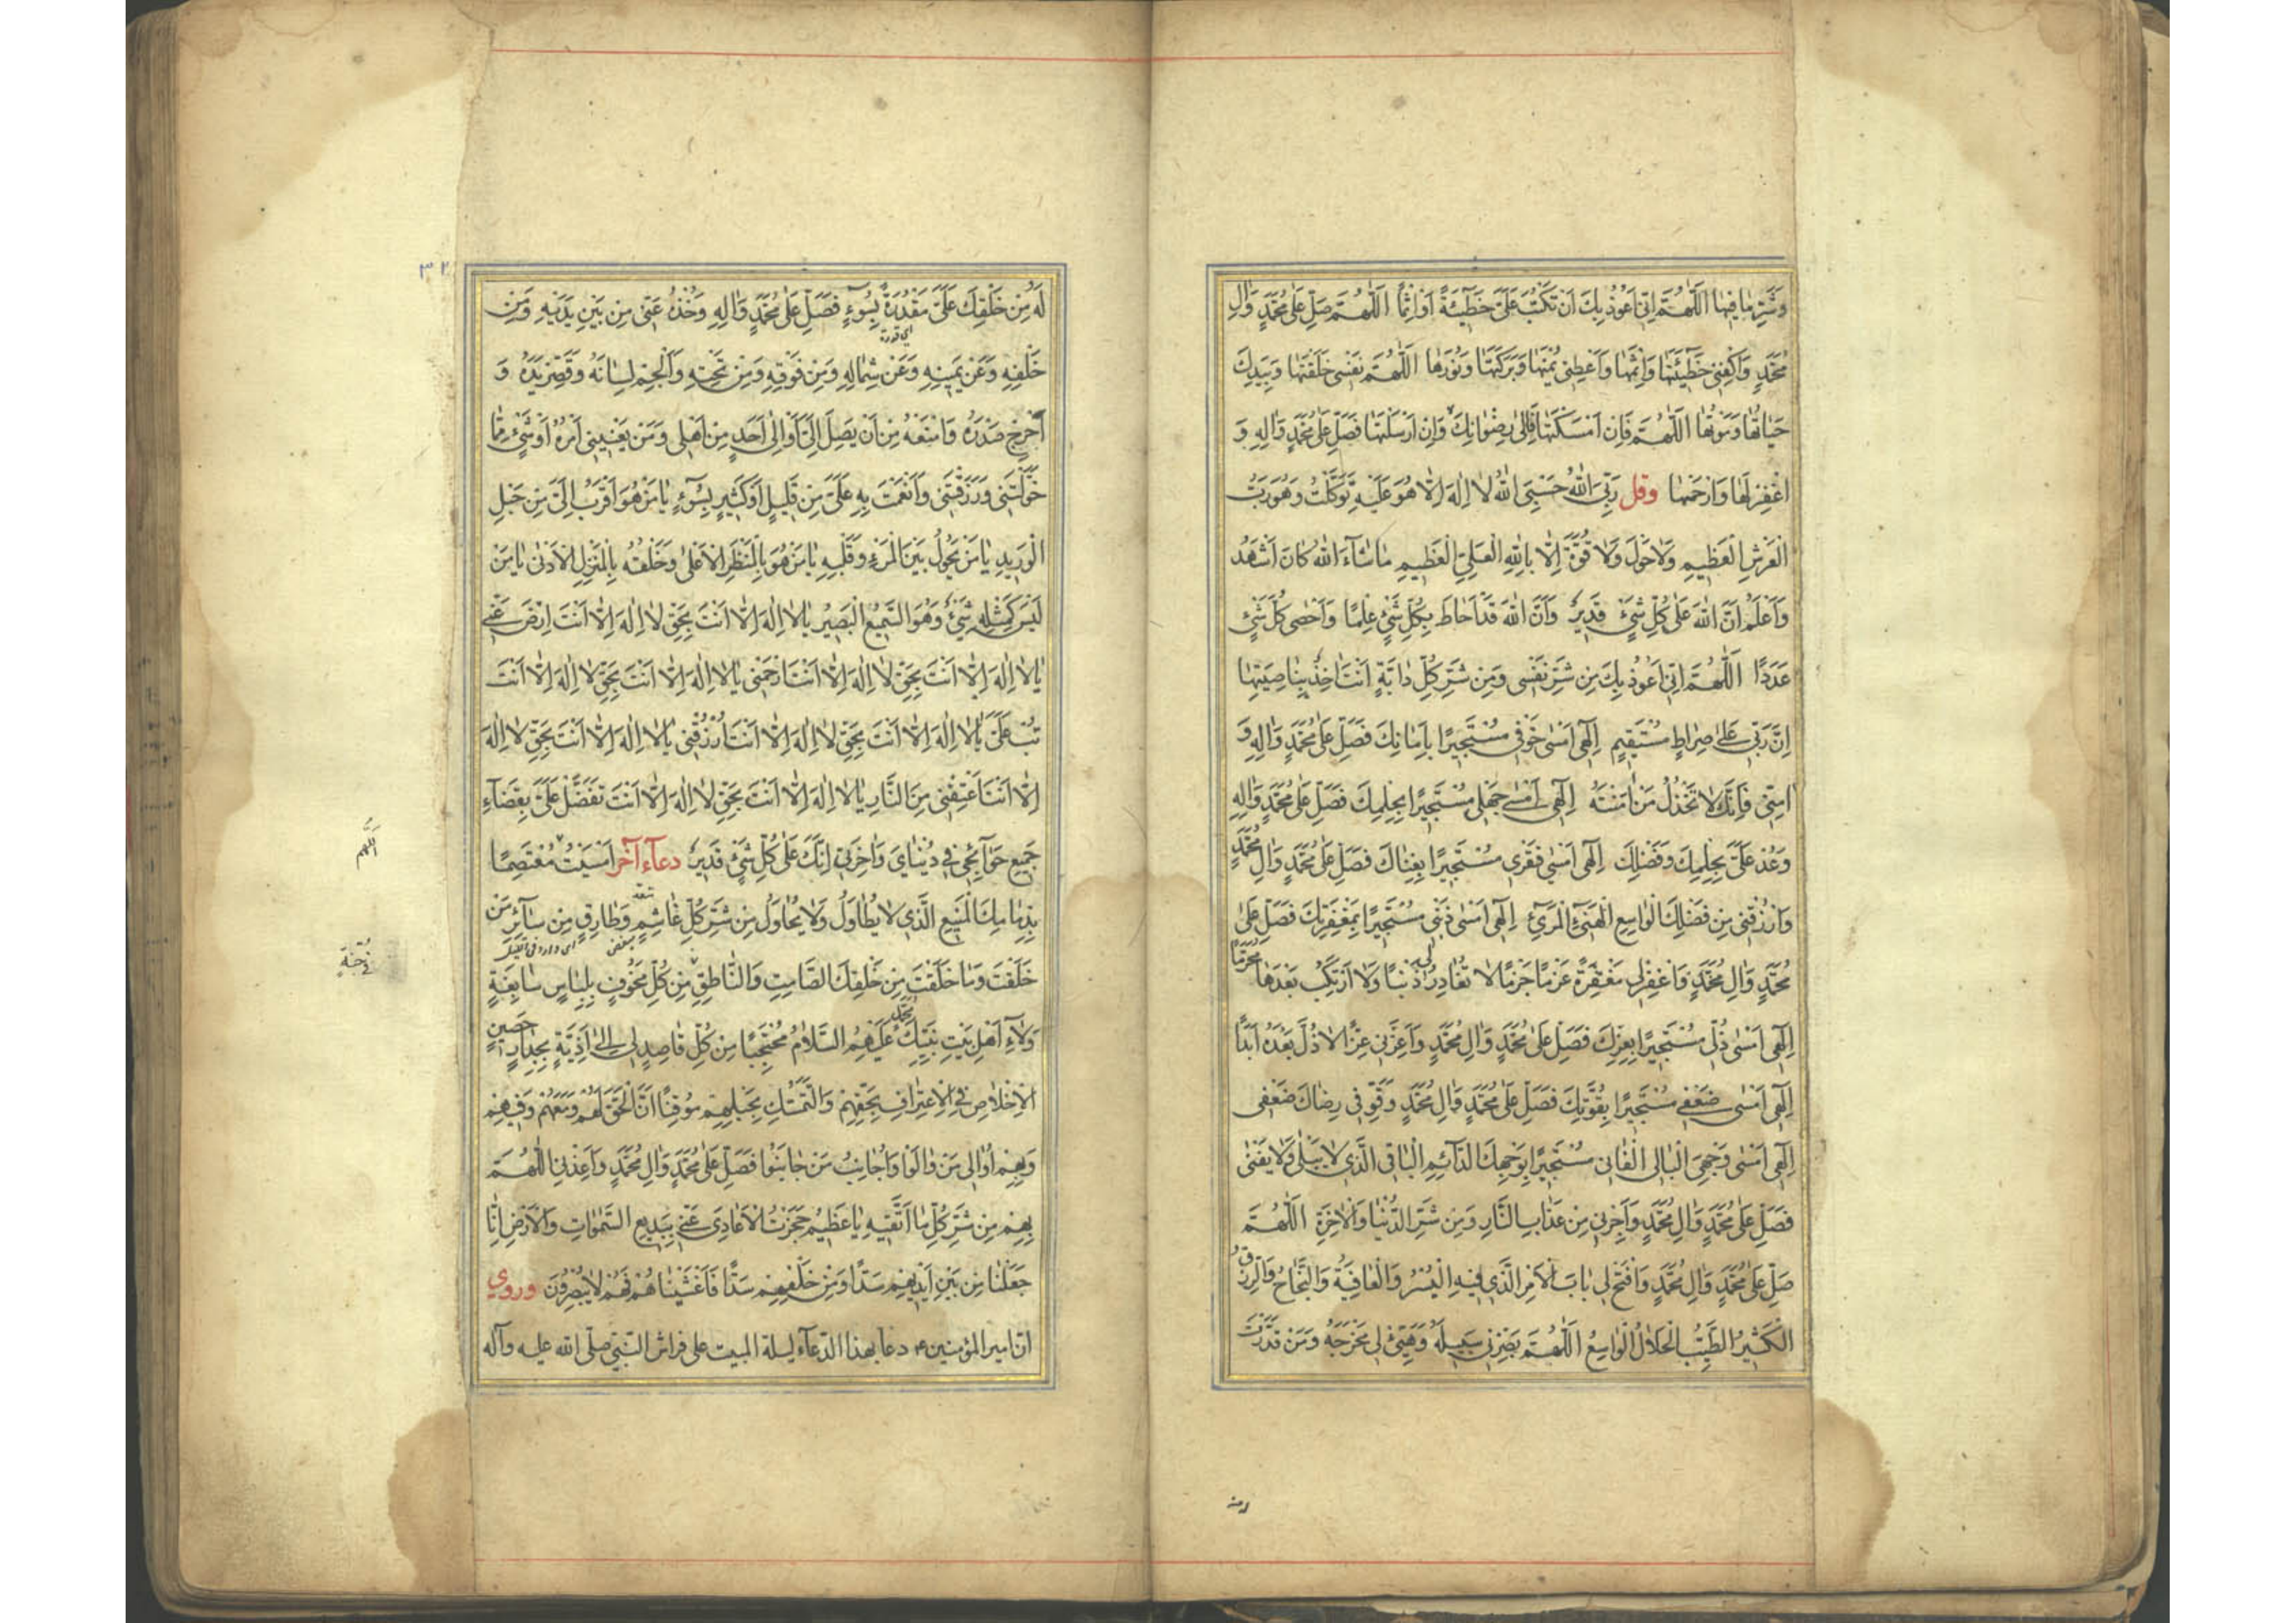 وَشَرِّ مَا فِيهَا اَللّٰهُمَّ اِنّى اَعُوْذُ بِكَ اَنْ تَكْتُبَ عَلَىَّ خَطٓيئَةً اَوْ اِثْمًا اَللّٰهُمَّ صَلِّ عَلٰى مُحَمَّدٍ وَالِ
مُحَمَّدٍ وَاكْفِنى خَطٓيئَتَهَا وَاِثْمَهَا وَاَعْطِنى يُمْنَهَا وَبَرَكَتَهَا وَنُورَهَا اَللّٰهُمَّ نَفْسى خَلَقْتَهَا وَبِيَدِكَ
حَيَاتُهَا وَمَوْتُهَا اَللّٰهُمَّ فَاِنْ اَمْسَكْتَهَا فَاِلٰى رِضْوَانِكَ وَاِنْ اَرْسَلْتَهَا فَصَلِّ عَلٰى مُحَمَّدٍ وَالِهِ وَ
اغْفِرْ لَهَا وَارْحَمْهَا وقل رَبِّىَ اللّٰهُ حَسْبِىَ اللّٰهُ لَا اِلٰهَ اِلَّا هُوَ عَلَيْهِ تَوَكَّلْتُ وَهُوَ رَبُّ
الْعَرْشِ الْعَظِيمِ وَلَا حَوْلَ وَلَا قُوَّةَ اِلَّا بِاللّٰهِ الْعَلِىِّ الْعَظِيمِ مَا شَآءَ اللّٰهُ كَانَ اَشْهَدُ
وَاَعْلَمُ اَنَّ اللّٰهَ عَلٰى كُلِّ شَىْءٍ قَدِيرٌ وَاَنَّ اللّٰهَ قَدْ اَحَاطَ بِكُلِّ شَىْءٍ عِلْمًا وَاَحْصٰى كُلَّ شَىْءٍ
عَدَدًا اَللّٰهُمَّ اِنّى اَعُوذُ بِكَ مِنْ شَرِّ نَفْسى وَمِنْ شَرِّ كُلِّ دَابَّةٍ اَنْتَ اٰخِذٌ بِنَاصِيَتِهَا
اِنَّ رَبّى عَلٰى صِرَاطٍ مُسْتَقِيمٍ اِلٰهى اَمْسٰى خَوْفى مُسْتَجِيرًا بِاَمَانِكَ فَصَلِّ عَلٰى مُحَمَّدٍ وَالِهِ وَ
اٰمِنّى فَاِنَّكَ لَا تَخْذُلُ مَنْ اٰمَنْتَهُ اِلٰهى اَمْسٰى جَهْلى مُسْتَجِيرًا بِحِلْمِكَ فَصَلِّ عَلٰى مُحَمَّدٍ وَالِهِ
وَعُدْ عَلَىَّ بِحِلْمِكَ وَفَضْلِكَ اِلٰهى اَمْسٰى فَقْرى مُسْتَجِيرًا بِغِنَاكَ فَصَلِّ عَلٰى مُحَمَّدٍ وَالِ مُحَمَّدٍ
وَارْزُقْنى مِنْ فَضْلِكَ الْوَاسِعِ الْهَنِىءِ الْمَرِىءِ اِلٰهى اَمْسٰى ذَنْبى مُسْتَجِيرًا بِمَغْفِرَتِكَ فَصَلِّ عَلٰى
مُحَمَّدٍ وَالِ مُحَمَّدٍ فَاغْفِرْ لى مَغْفِرَةً عَزْمًا جَزْمًا لَا تُغَادِرُ لى ذَنْبًا وَلَا اَرْتَكِبُ بَعْدَهَا مُحَرَّمًا
اِلٰهى اَمْسٰى ذُلّى مُسْتَجِيرًا بِعِزِّكَ فَصَلِّ عَلٰى مُحَمَّدٍ وَالِ مُحَمَّدٍ وَاَعِزَّنى عِزًّا لَا ذُلَّ بَعْدَهُ اَبَدًا
اِلٰهى اَمْسٰى ضَعْفى مُسْتَجِيرًا بِقُوَّتِكَ فَصَلِّ عَلٰى مُحَمَّدٍ وَالِ مُحَمَّدٍ وَقَوِّ فى رِضَاكَ ضَعْفى
اِلٰهى اَمْسٰى وَجْهِىَ الْبَالى الْفَانى مُسْتَجِيرًا بِوَجْهِكَ الدَّآئِمِ الْبَاقى الَّذى لَا يَبْلٰى وَلَا يَفْنٰى
فَصَلِّ عَلٰى مُحَمَّدٍ وَالِ مُحَمَّدٍ وَاَجِرْنى مِنْ عَذَابِ النَّارِ وَمِنْ شَرِّ الدُّنْيَا وَالْاٰخِرَةِ اَللّٰهُمَّ
صَلِّ عَلٰى مُحَمَّدٍ وَالِ مُحَمَّدٍ وَافْتَحْ لى بَابَ الْاَمْرِ الَّذى فِيهِ الْيُسْرُ وَالْعَافِيَةُ وَالنَّجَاحُ وَالرِّزْقُ
الْكَثِيرُ الطَّيِّبُ الْحَلَالُ الْوَاسِعُ اَللّٰهُمَّ بَصِّرْنى سَبِيلَهُ وَهَيِّئْ لى مَخْرَجَهُ وَمَنْ قَدَّرْتَ
لَهُ مِنْ خَلْقِكَ عَلَىَّ مَقْدُرَةً بِسُوٓءٍ فَصَلِّ عَلٰى مُحَمَّدٍ وَالِهِ وَخُذْهُ عَنّى مِنْ بَيْنِ يَدَيْهِ وَمِنْ
خَلْفِهِ وَعَنْ يَمِينِهِ وَعَنْ شِمَالِهِ وَمِنْ فَوْقِهِ وَمِنْ تَحْتِهِ وَاَلْجِمْ لِسَانَهُ وَقَصِّرْ يَدَهُ وَ
اَحْرِجْ صَدْرَهُ وَامْنَعْهُ مِنْ اَنْ يَصِلَ اِلَىَّ اَوْ اِلٰى اَحَدٍ مِنْ اَهْلى وَمَنْ يَعْنِينى اَمْرُهُ اَوْ شَىْءٍ مِمَّا
خَوَّلْتَنى وَرَزَقْتَنى وَاَنْعَمْتَ بِهِ عَلَىَّ مِنْ قَلِيلٍ اَوْ كَثِيرٍ بِسُوٓءٍ يَا مَنْ هُوَ اَقْرَبُ اِلَىَّ مِنْ حَبْلِ
الْوَرِيدِ يَا مَنْ يَحُولُ بَيْنَ الْمَرْءِ وَقَلْبِهِ يَا مَنْ هُوَ بِالْمَنْظَرِ الْاَعْلٰى وَخَلْقُهُ بِالْمَنْزِلِ الْاَدْنٰى يَا مَنْ
لَيْسَ كَمِثْلِهِ شَىْءٌ وَهُوَ السَّمِيعُ الْبَصِيرُ يَا لَا اِلٰهَ اِلَّا اَنْتَ بِحَقِّ لَا اِلٰهَ اِلَّا اَنْتَ اِرْضَ عَنّى
يَا لَا اِلٰهَ اِلَّا اَنْتَ بِحَقِّ لَا اِلٰهَ اِلَّا اَنْتَ ارْحَمْنى يَا لَا اِلٰهَ اِلَّا اَنْتَ بِحَقِّ لَا اِلٰهَ اِلَّا اَنْتَ
تُبْ عَلَىَّ يَا لَا اِلٰهَ اِلَّا اَنْتَ بِحَقِّ لَا اِلٰهَ اِلَّا اَنْتَ اُرْزُقْنى يَا لَا اِلٰهَ اِلَّا اَنْتَ بِحَقِّ لَا اِلٰهَ
اِلَّا اَنْتَ اَعْتِقْنى مِنَ النَّارِ يَا لَا اِلٰهَ اِلَّا اَنْتَ بِحَقِّ لَا اِلٰهَ اِلَّا اَنْتَ تَفَضَّلْ عَلَىَّ بِقَضَآءِ
جَمِيعِ حَوَآئِجى فى دُنْيَاىَ وَاٰخِرَتى اِنَّكَ عَلٰى كُلِّ شَىْءٍ قَدِيرٌ دعآء آخر اَمْسَيْتُ مُعْتَصِمًا
اَللّٰهُمَّ
بِذِمَامِكَ الْمَنِيعِ الَّذى لَا يُطَاوَلُ وَلَا يُحَاوَلُ مِنْ شَرِّ كُلِّ غَاشِمٍ وَطَارِقٍ مِنْ سَآئِرِ مَنْ
خَلَقْتَ وَمَا خَلَقْتَ مِنْ خَلْقِكَ الصَّامِتِ وَالنَّاطِقِ مِنْ كُلِّ مَخُوفٍ بِلِبَاسٍ سَابِغَةٍ
فى جُنَّةٍ
وَلَآءِ اَهْلِ بَيْتِ نَبِيِّكَ مُحَمَّدٍ عَلَيْهِمُ السَّلَامُ مُحْتَجِبًا مِنْ كُلِّ قَاصِدٍ لى اِلٰى اَذِيَّةٍ بِجِدَارٍ حَصِينِ
الْاِخْلَاصِ فى الْاِعْتِرَافِ بِحَقِّهِمْ وَالتَّمَسُّكِ بِحَبْلِهِمْ مُوقِنًا اَنَّ الْحَقَّ لَهُمْ وَمَعَهُمْ وَفِيهِمْ
وَبِهِمْ اُوَالى مَنْ وَالَوْا وَاُجَانِبُ مَنْ جَانَبُوا فَصَلِّ عَلٰى مُحَمَّدٍ وَالِ مُحَمَّدٍ وَاَعِذْنى اللّٰهُمَّ
بِهِمْ مِنْ شَرِّ كُلِّ مَا اَتَّقِيهِ يَا عَظِيمُ حَجَزْتُ الْاَعَادِىَ عَنّى بِبَدِيعِ السَّمٰوَاتِ وَالْاَرْضِ اِنَّا
جَعَلْنَا مِنْ بَيْنِ اَيْدِيهِمْ سَدًّا وَمِنْ خَلْفِهِمْ سَدًّا فَاَغْشَيْنَاهُمْ فَهُمْ لَا يُبْصِرُونَ وروي
ان امير المؤمنين ع دعا بهذا الدّعآء ليلة المبيت على فراش النّبيّ صلّى الله عليه وآله